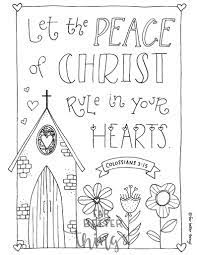 Let the PEACE
of CHRIST
RULE in YOUR
HEARTS.
COLOSSIANS 3:15
THE
BETTER
things